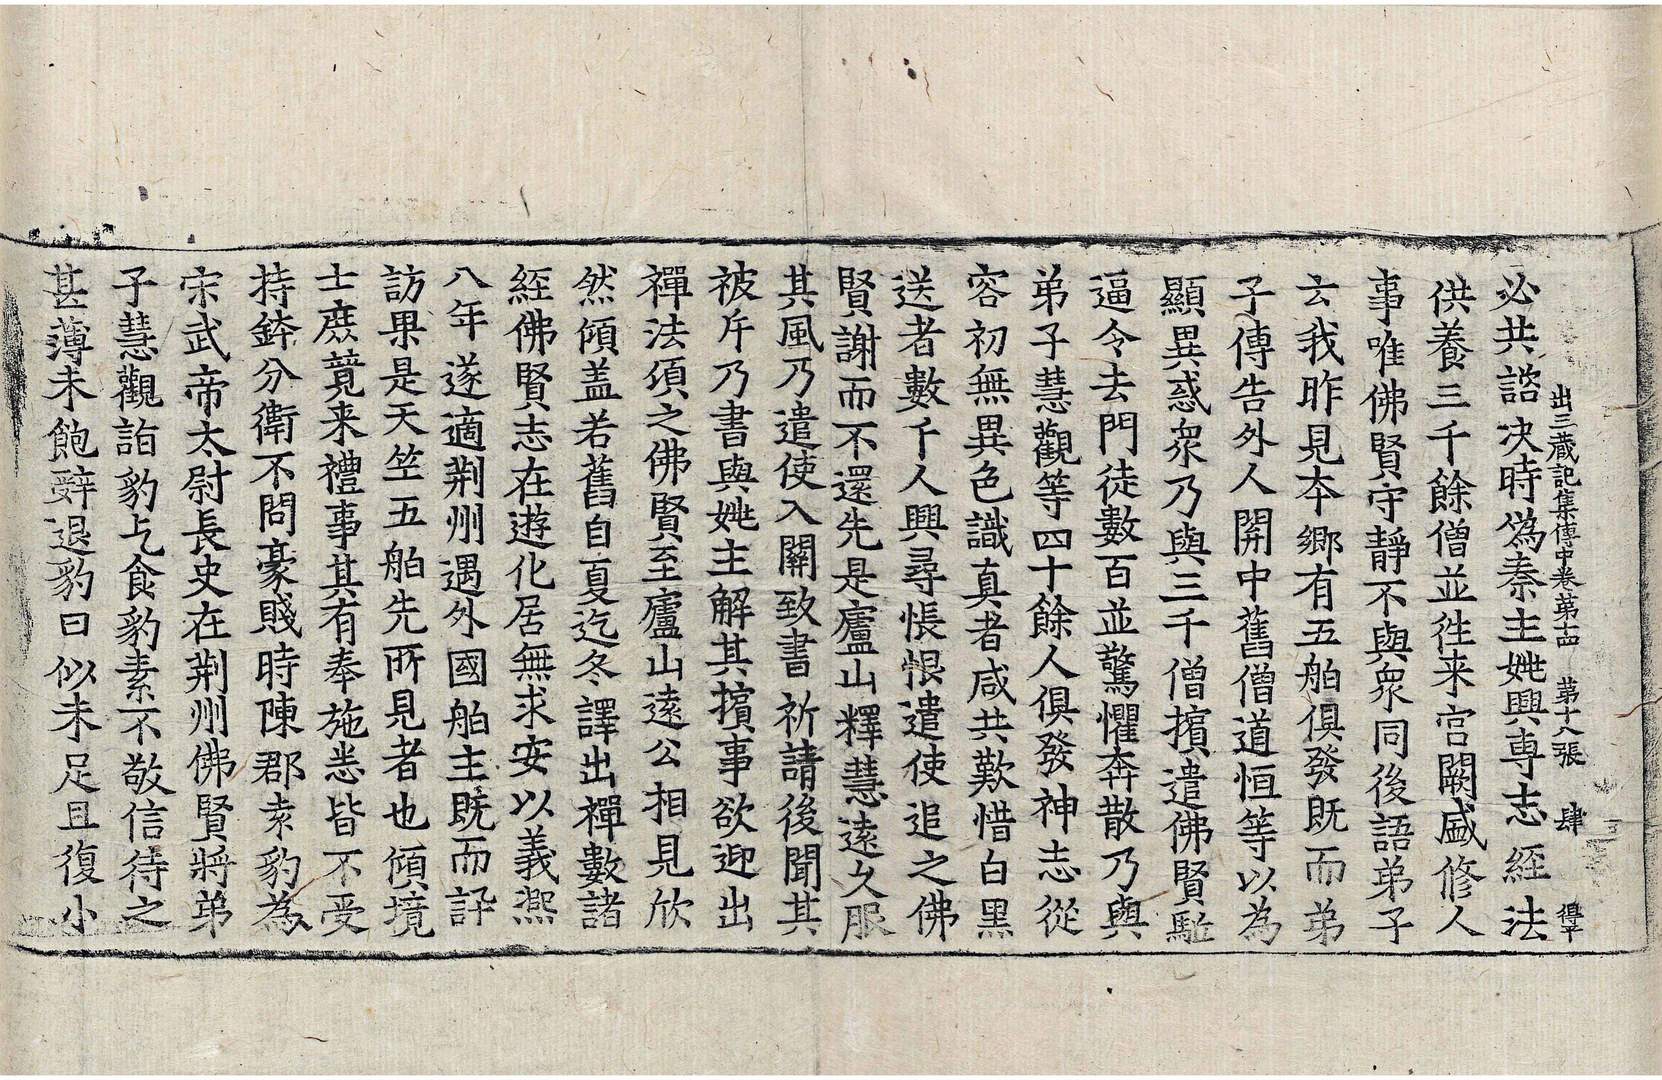 出三藏記集傳中卷第十四　第十八張　肆
必共諮决時偽秦主姚興專志經法
供養三千餘僧並往来宫闕盛修人
事唯佛賢守静不與衆同後語弟子
云我昨見本鄉有五舶俱發既而弟
子傳告外人關中舊僧道恒等以為
顯異惑衆乃與三千僧擯遣佛賢駈
逼令去門徒數百並驚懼奔散乃與
弟子慧觀等四十餘人俱發神志從
容初無異色識真者咸共歎惜白黑
送者數千人興尋悵恨遣使追之佛
賢謝而不還先是廬山釋慧遠久服
其風乃遣使入關致書祈請後聞其
被斥乃書與姚主解其擯事欲迎出
禪法頃之佛賢至廬山遠公相見欣
然傾盖若舊自夏迄冬譯出禪數諸
經佛賢志在遊化居無求安以義熙
八年遂適荆州遇外國舶主既而訊
訪果是天竺五舶先所見者也傾境
士庶競来禮事其有奉施悉皆不受
持鉢分衛不問豪賤時陳郡袁豹為
宋武帝太尉長史在荆州佛賢將弟
子慧觀詣豹乞食豹素不敬信待之
甚薄未飽辭退豹曰似未足且復小